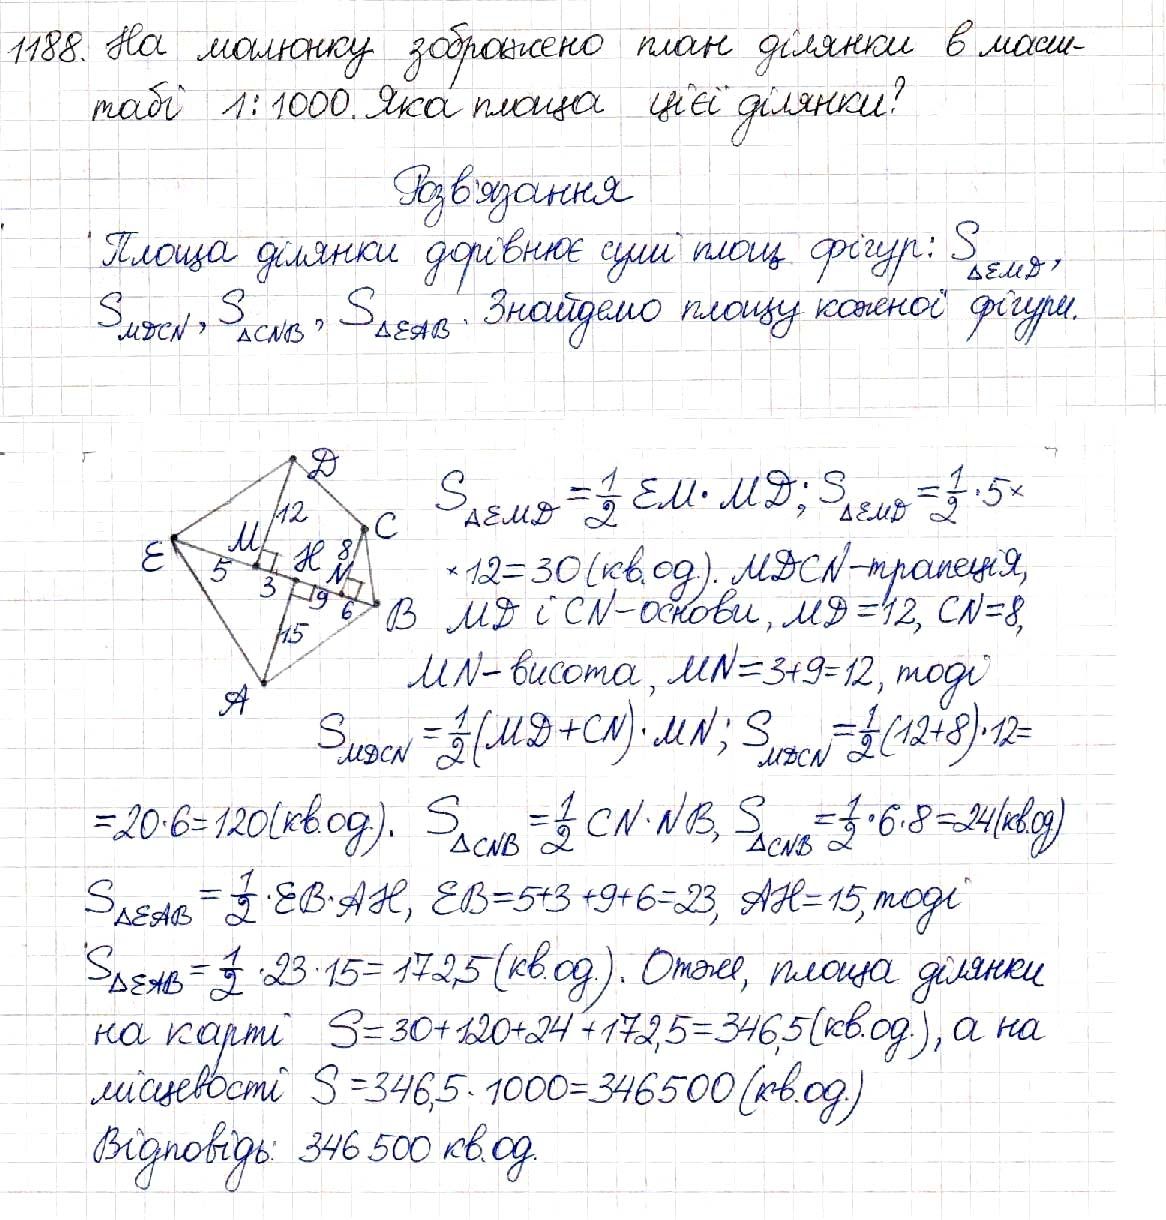 1188. На малюнку зображено план ділянки в масш-
табі 1:1000. Яка площа цієї ділянки?
Розв'язання
Площа ділянки дорівнює сумі площ фігур: S△EMD,
SMDCN, S△CNB, S△EAB. Знайдемо площу кожної фігури.
D
12
C
M
H
8
N
E
5
3
9
6
B
15
A
S△EMD = 1/2 EM · MD; S△EMD = 1/2 · 5 ×
× 12 = 30 (кв.од.). MDCN – трапеція,
MD і CN – основи, MD = 12, CN = 8,
MN – висота, MN = 3+9 = 12, тоді
SMDCN = 1/2 (MD + CN) · MN; SMDCN = 1/2 (12+8) · 12 =
= 20 · 6 = 120 (кв.од.). S△CNB = 1/2 CN · NB, S△CNB = 1/2 · 6 · 8 = 24 (кв.од)
S△EAB = 1/2 · EB · AH, EB = 5+3+9+6 = 23, AH = 15, тоді
S△EAB = 1/2 · 23 · 15 = 172,5 (кв.од.). Отже, площа ділянки
на карті S = 30+120+24+172,5 = 346,5 (кв.од.), а на
місцевості S = 346,5 · 1000 = 346500 (кв.од.)
Відповідь: 346 500 кв.од.